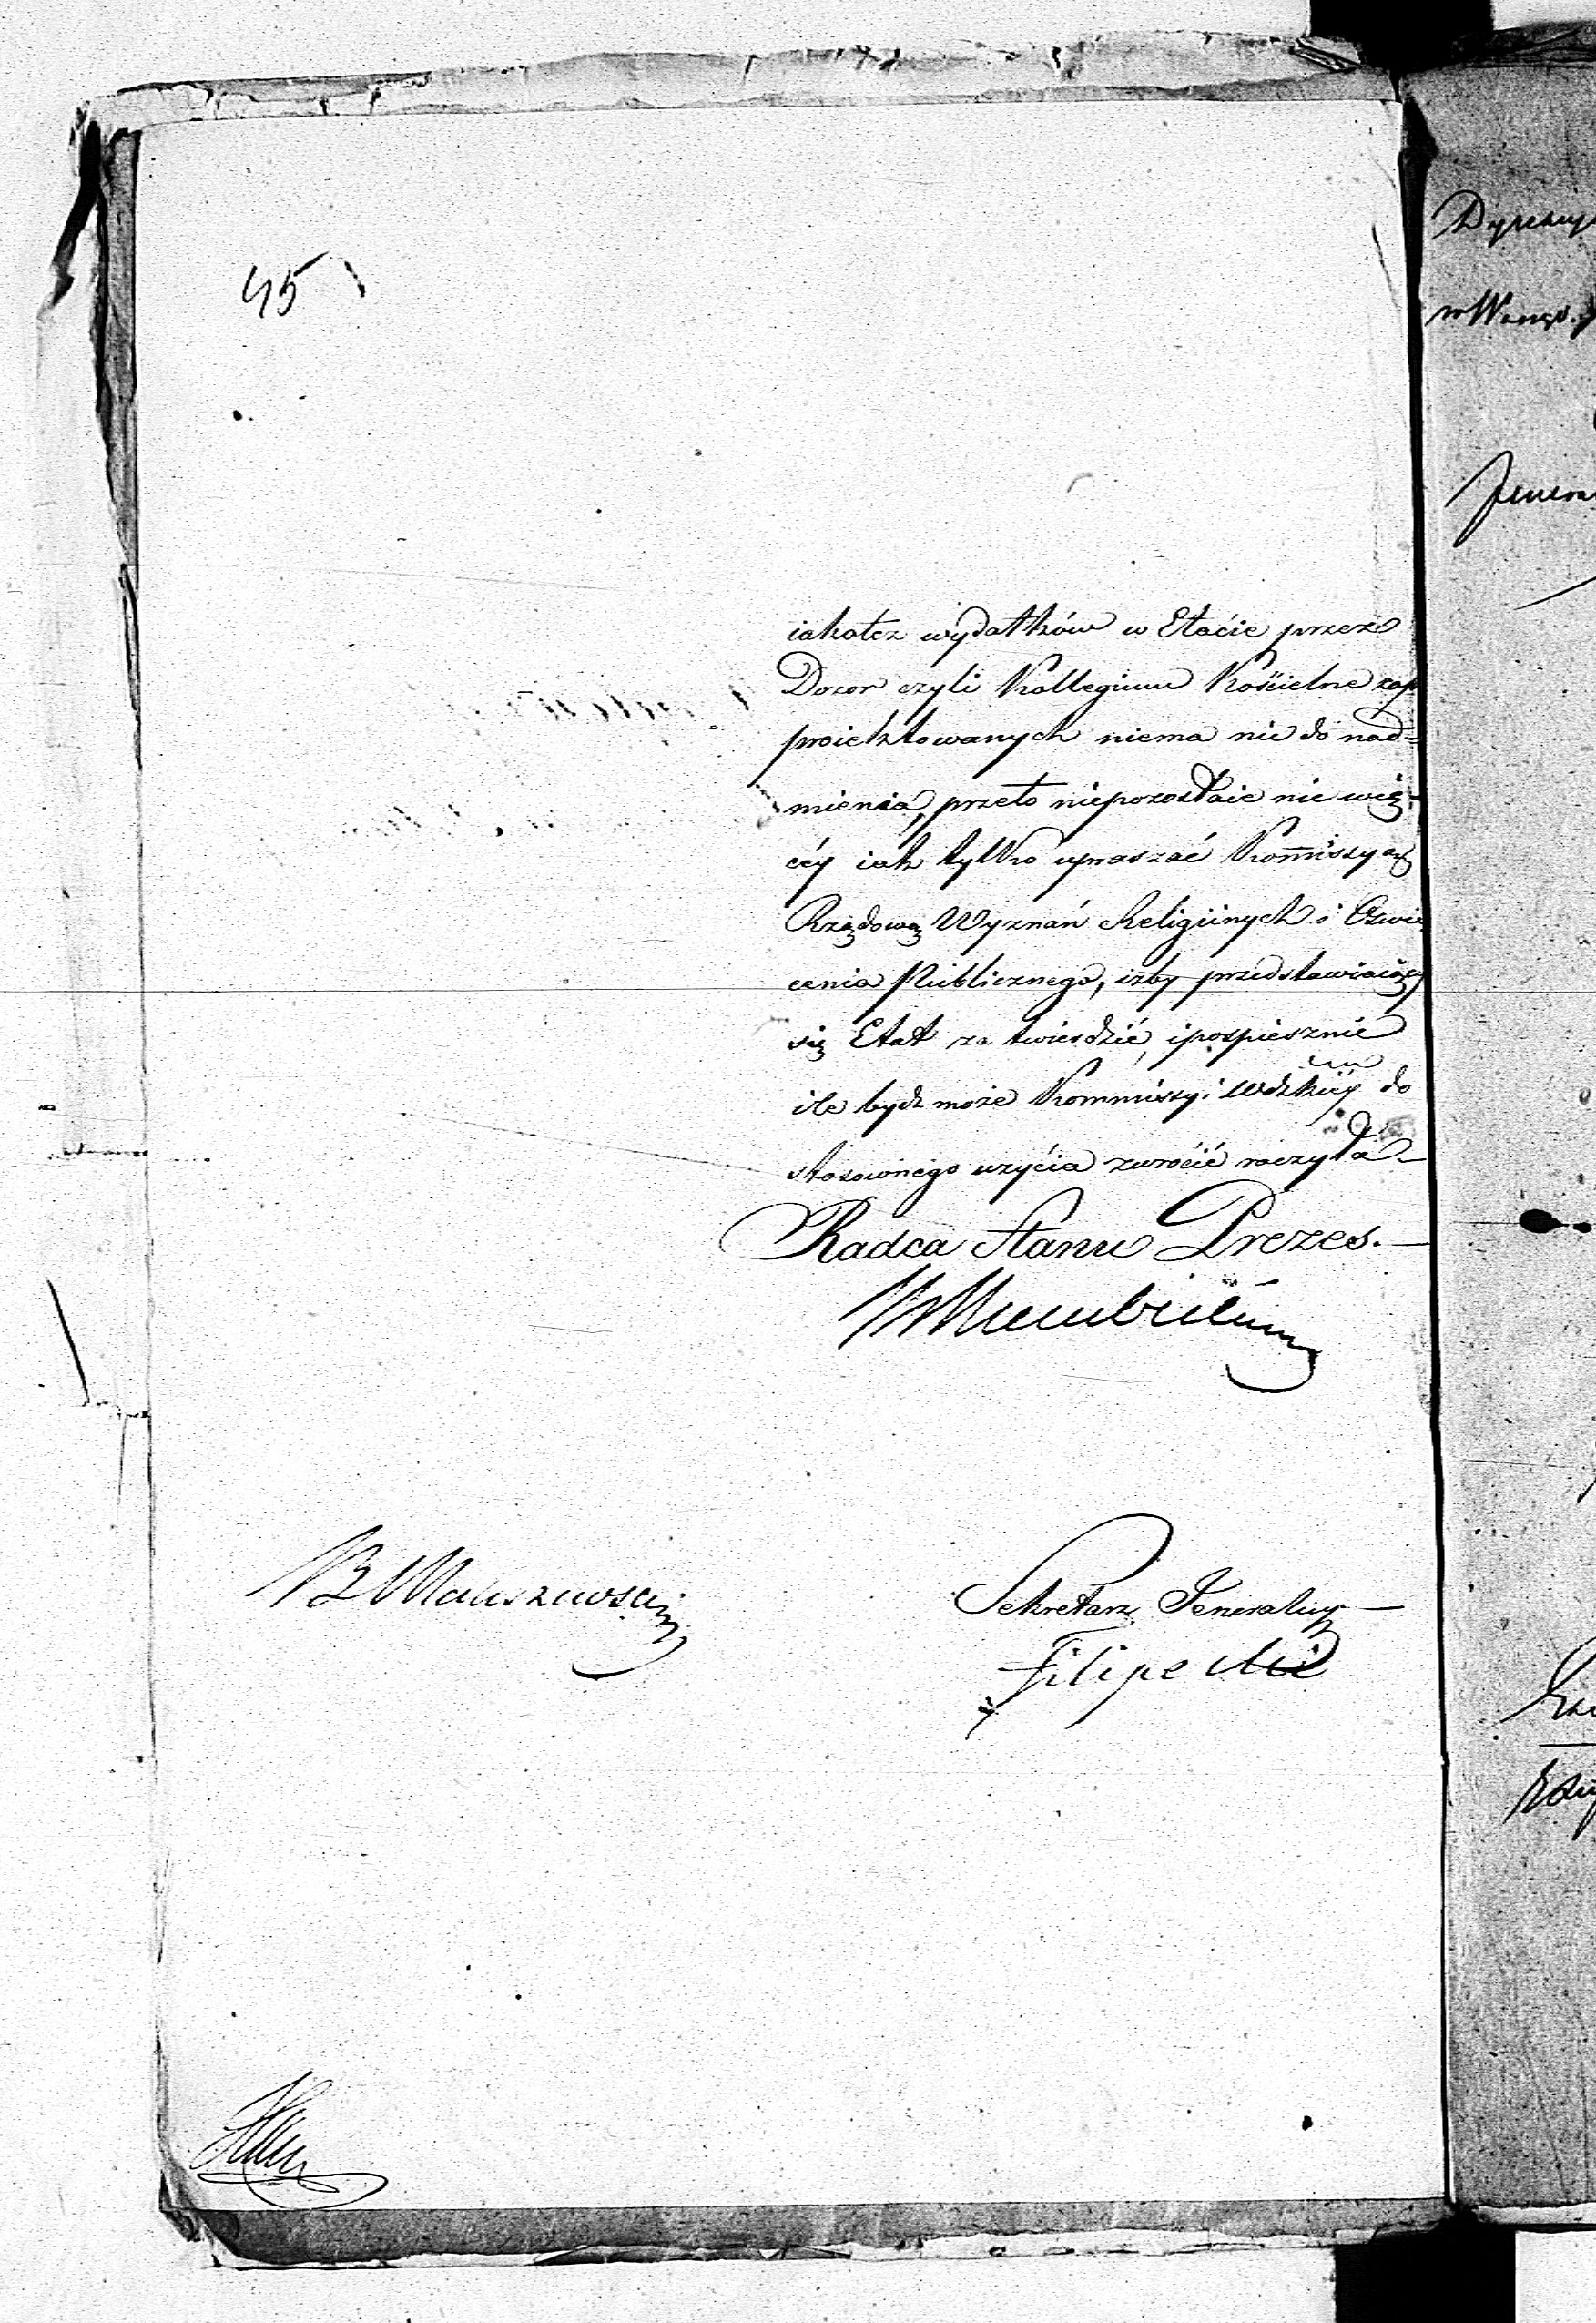 45
iakotez wydatków w Etacie przez
Dozor czyli Kollegium Kościelne zap
proiektowanych niema nic do nad=
mienia, przeto niepozostaie nic wię-
céy iak tylko upraszać Kommissyą
Rządową Wyznań Religiinych i Oświe
cenia Publicznego, izby przedstawiaiący
się Etat zatwierdzić, i pospiesznie
ile bydz może Kommissyi Wdzkiéy do
stosownego uzycia zwrócić raczyła
Radca Stanu Prezes.
Sekretarz Jeneralny
Filipecki